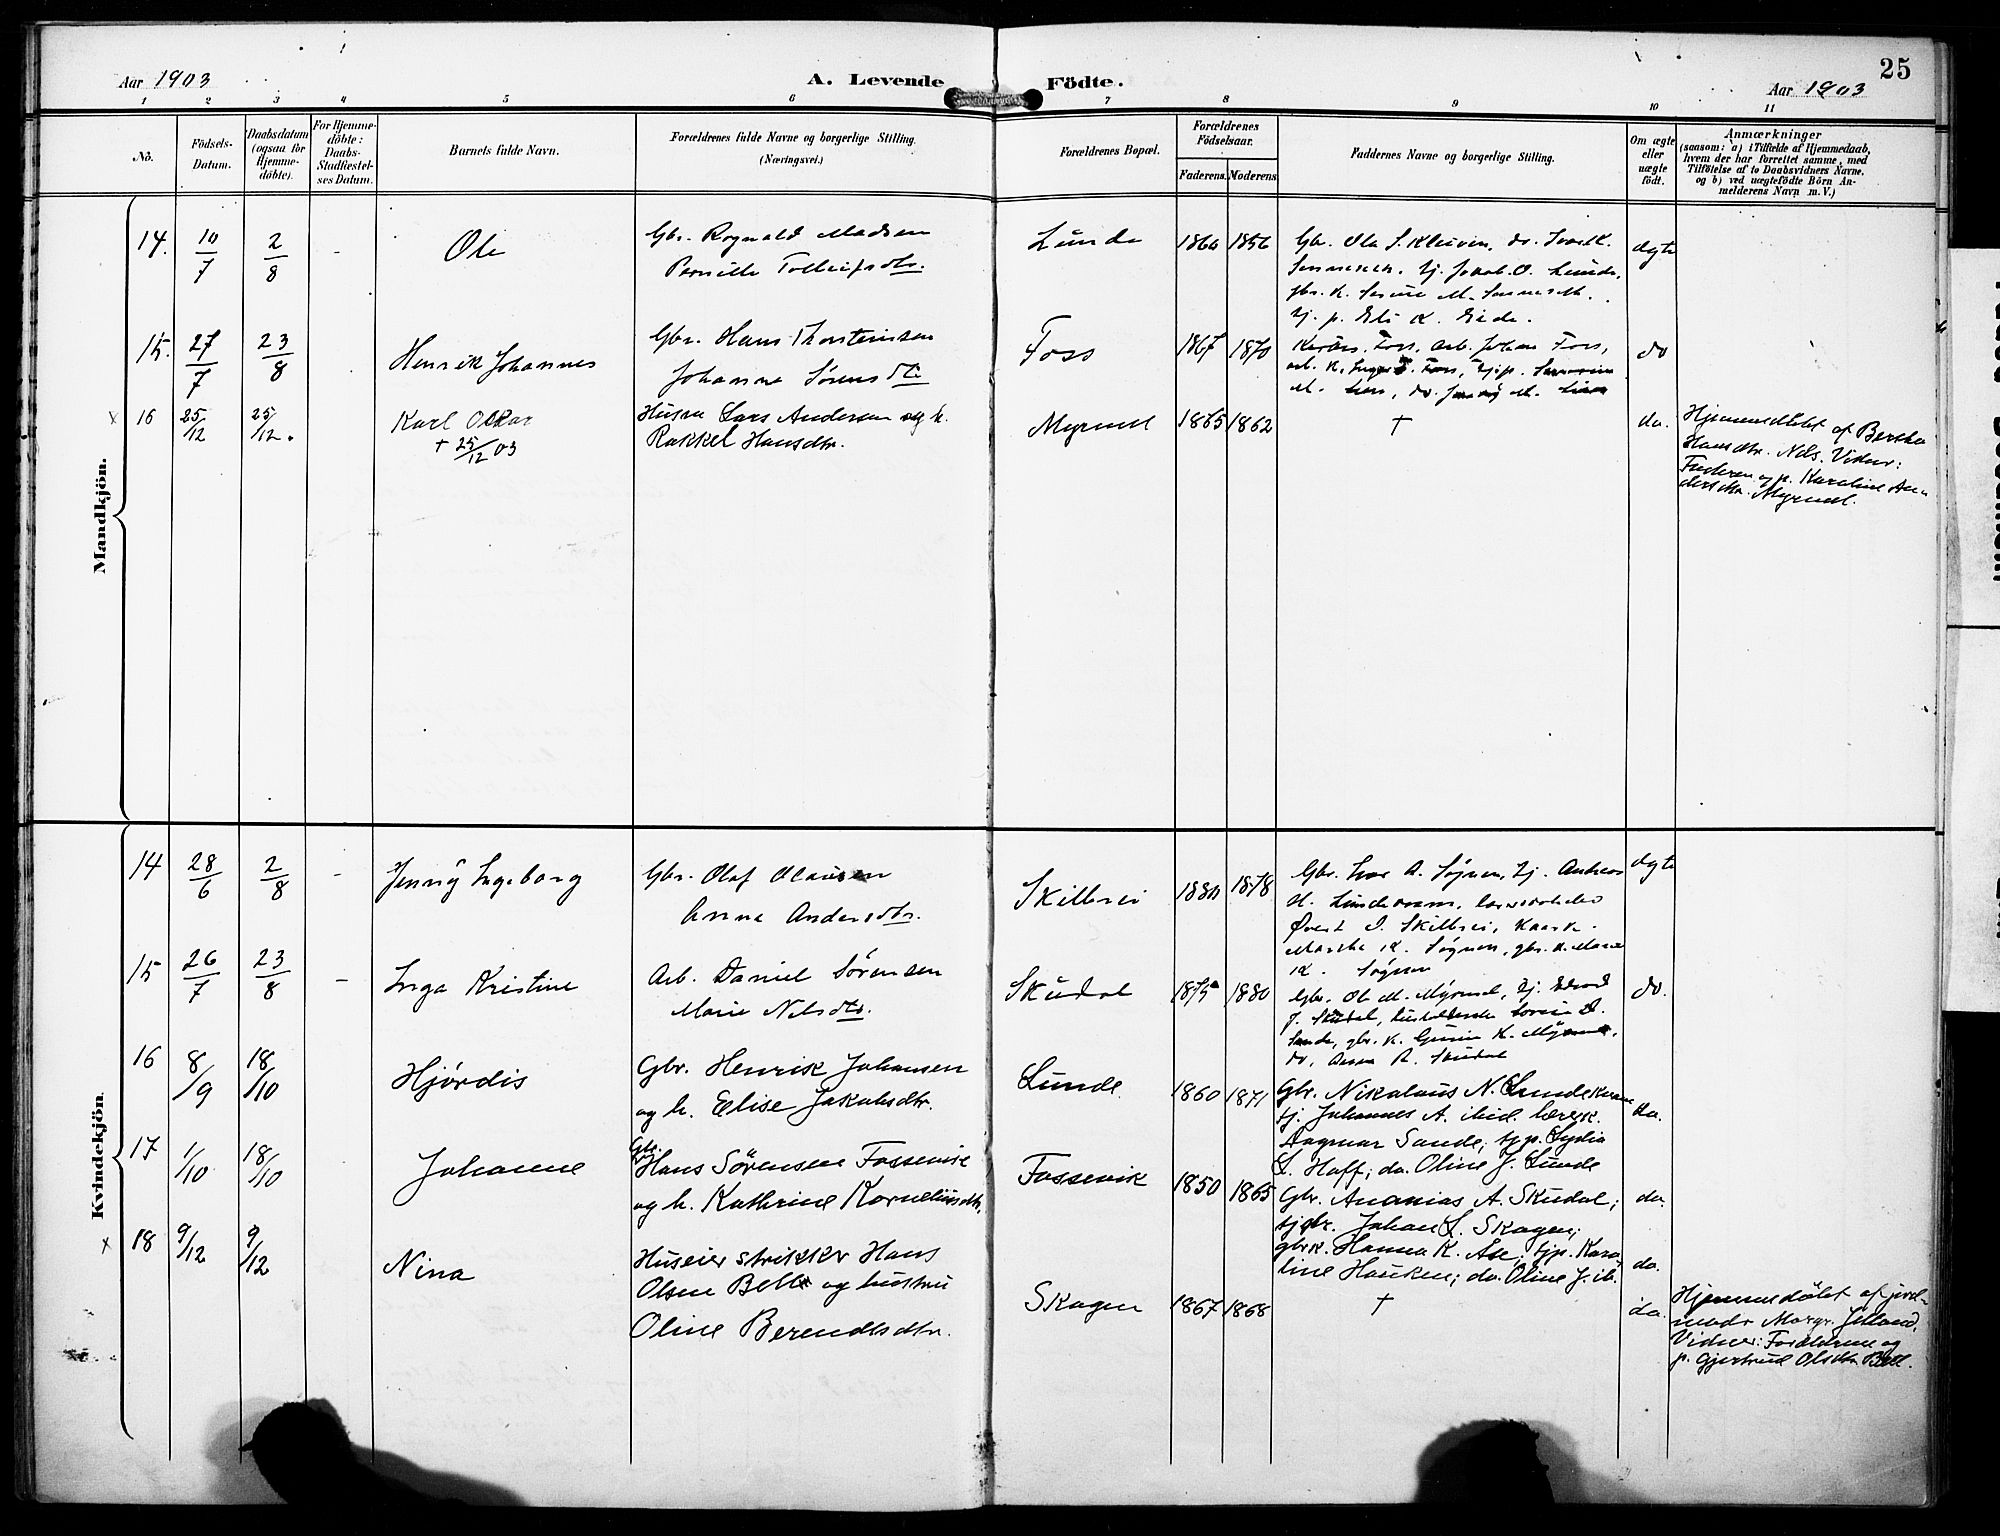 25
Aar 1903
A. Levende Födte.
Aar 1903
1 2 3 4 5 6 7 8 9 10 11
No.
Födsels-
Datum.
Daabsdatum
(ogsaa for
Hjemme-
döbte).
For Hjemme-
döbte:
Daabs-
Stadfæstel-
ses Datum.
Barnets fulde Navn.
Forældrenes fulde Navne og borgerlige Stilling.
(Næringsvei.)
Forældrenes Bopæl.
Forældrenes
Födselsaar.
Faderens. Moderens.
Faddernes Navne og borgerlige Stilling.
Om ægte
eller
uægte
födt.
Anmærkninger
(saasom: a) i Tilfælde af Hjemmedaab,
hvem der har forrettet samme, med
Tilföielse af to Daabsvidners Navne,
og b) ved uægtefödte Börn An-
melderens Navn m. V.)
Mandkjön.
14. 10/7 2/8 - Ole
Gbr. Rognald Madsen
Pernille Tolleifsdtr.
Lunde 1860 1856
Gbr. Ole S. Kleiven, do.
tj. Jakob O. Lunde,
gbr. k.
tj. p. Eli K. Eide.
ægte
15. 27/7 23/8 Henrik Johannes
Gbr. Hans Thorsteinsen
Johanna Sørensdtr.
Foss 1867 1870
Foss, arb. Johan Foss,
do
x 16 25/12 25/12. Karl Oskar
+ 25/12 03
Husm. Lars Andersen og h.
Rakkel Hansdtr.
Myrmel 1865 1862 † do.
Hjemmedöbt af Bertha
Hansdtr. Nels. Vidner:
Faderen og p. Karoline An-
dersdtr. Myrmel.
Kvindekjön.
14 28/6 2/8 - Jenny Ingeborg
Gbr. Olaf Olausen
Anna Andersdtr.
Skilbrei 1880 1878
Gbr. Ivar A. Søgnen, tj. Andreas
H. Lundekvam,
Øvest I. Skilbrei,
Martha K. Søgnen, gbr. k. Marie
K. Søgnen
ægte
15 26/7 23/8 - Inga Kristine
Arb. Daniel Sørensen
Marie Nilsdtr.
Skudal 1875 1880
Gbr. Ole M. Myrmel, tj. Edvard
J. Skudal,
Sande, gbr. k.
do, Anna R. Skudal
do.
16 8/9 18/10 Hjørdis
Gbr. Henrik Johansen
og h. Elise Jakobsdtr.
Lunde 1860 1871
Gbr. Nikolaus N. Lundekvam
tj. Johannes A. ibid. lærersk.
Dagmar Sande; tjp. Lydia
L. Hoff; do. Oline J. Lunde
do.
17 1/10 18/10 Johanne
Gbr.
Hans Sørensen Fossevik
og h. Kathrine Korneliusdtr.
Fossevik 1850 1865
Gbr. Ananias A. Skudal;
tjgbr. Johan L. Skagen;
gbrk. Hanna K. Ase; tjp. Karo-
line Hauken; do. Oline J. ib.
do.
do.
x 18 9/12 9/12 Nina
Huseier strikker Hans
Olsen Bell og hustru
Oline Berendtsdtr.
Skagen 1867 1868 † do.
Hjemmedöbt af jord-
moder Margr. Jelland.
Vidner: Forældrene og
p. Gjertrud Olsdtr. Bell.